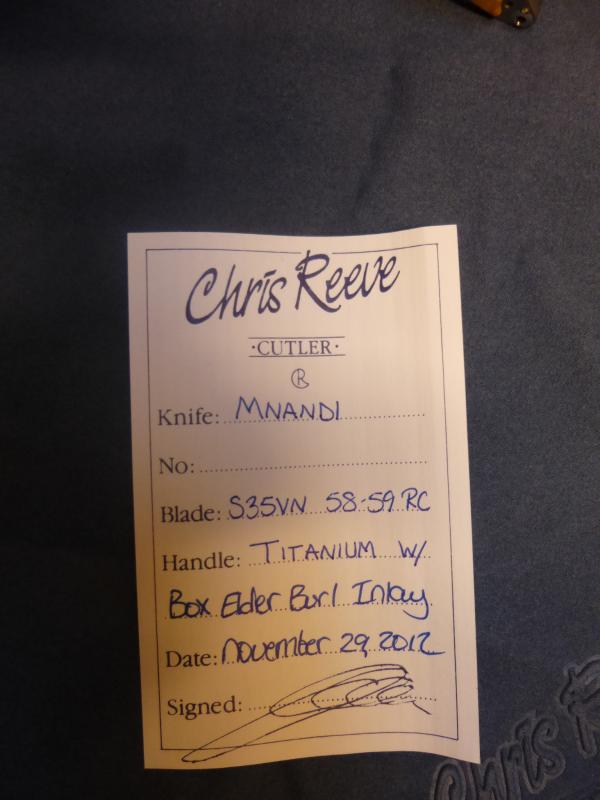 Chris Reeve
·CUTLER·
Knife: MNANDI
No:
Blade: S35VN 58-59 RC
Handle: TITANIUM W/
Box Elder Burl Inlay
Date: November 29, 2012
Signed:
Chris R